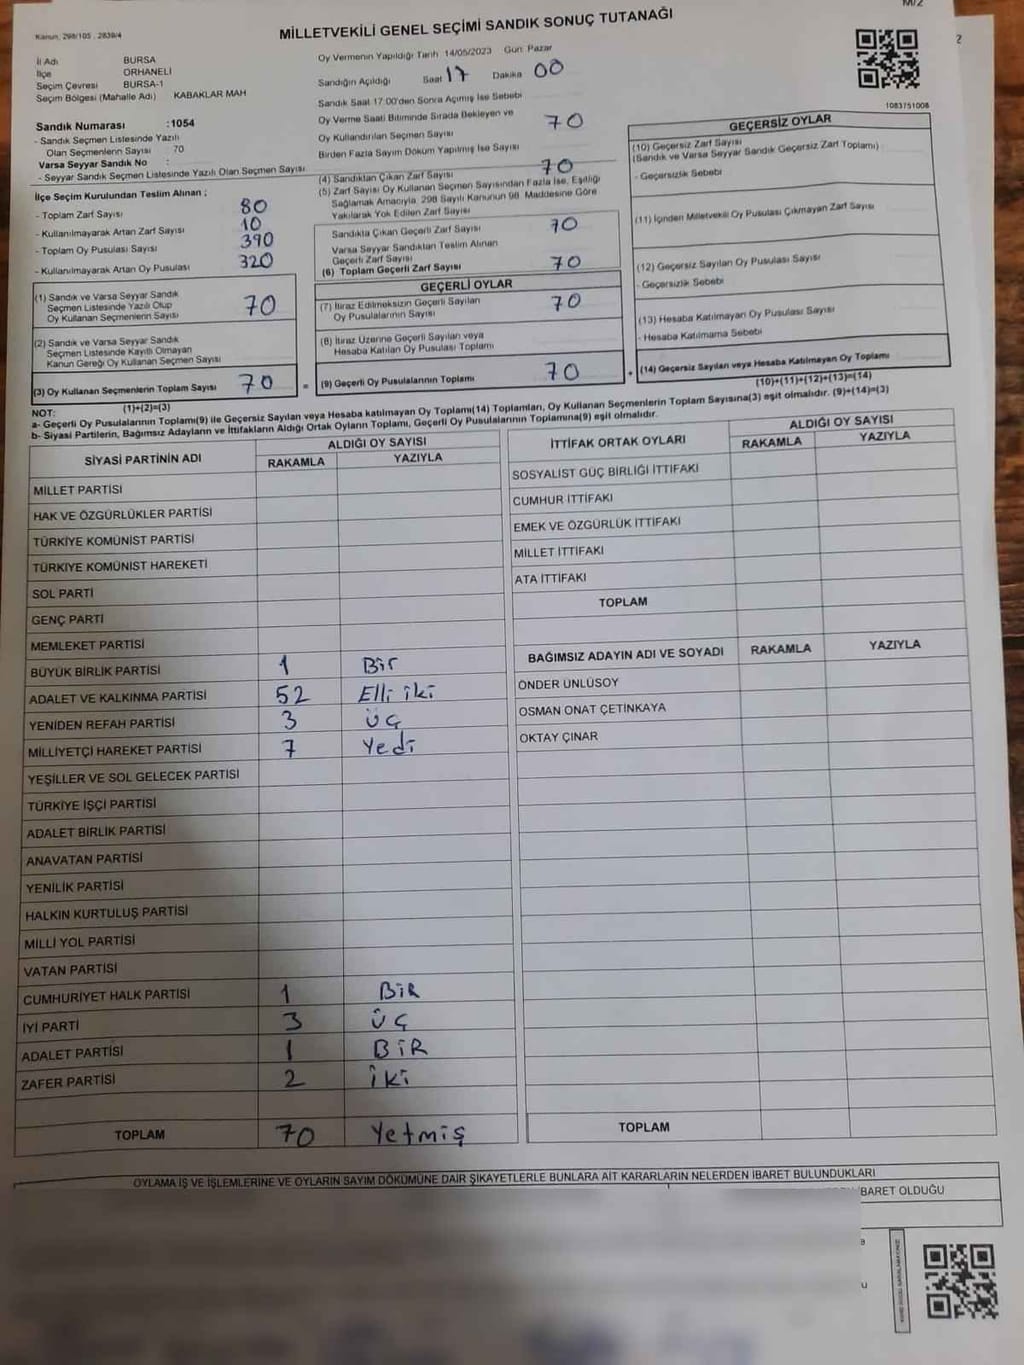 M/2
Kanun, 298/105 , 2839/4
MİLLETVEKİLİ GENEL SEÇİMİ SANDIK SONUÇ TUTANAĞI
2
İl Adı BURSA
İlçe ORHANELİ
Seçim Çevresi BURSA-1
Seçim Bölgesi (Mahalle Adı) KABAKLAR MAH
Sandık Numarası :1054
- Sandık Seçmen Listesinde Yazılı
Olan Seçmenlerin Sayısı 70
Varsa Seyyar Sandık No :
- Seyyar Sandık Seçmen Listesinde Yazılı Olan Seçmen Sayısı
İlçe Seçim Kurulundan Teslim Alınan ;
- Toplam Zarf Sayısı 80
- Kullanılmayarak Artan Zarf Sayısı 10
- Toplam Oy Pusulası Sayısı 390
- Kullanılmayarak Artan Oy Pusulası 320
(1) Sandık ve Varsa Seyyar Sandık
Seçmen Listesinde Yazılı Olup
Oy Kullanan Seçmenlerin Sayısı 70
(2) Sandık ve Varsa Seyyar Sandık
Seçmen Listesinde Kayıtlı Olmayan
Kanun Gereği Oy Kullanan Seçmen Sayısı
(3) Oy Kullanan Seçmenlerin Toplam Sayısı 70 =
(1)+(2)=(3)
Oy Vermenin Yapıldığı Tarih 14/05/2023 Gün Pazar
Sandığın Açıldığı Saat 17 Dakika 00
Sandık Saat 17.00'den Sonra Açılmış İse Sebebi
Oy Verme Saati Bitiminde Sırada Bekleyen ve
Oy Kullandırılan Seçmen Sayısı 70
Birden Fazla Sayım Döküm Yapılmış İse Sayısı
(4) Sandıktan Çıkan Zarf Sayısı 70
(5) Zarf Sayısı Oy Kullanan Seçmen Sayısından Fazla İse, Eşitliği
Sağlamak Amacıyla, 298 Sayılı Kanunun 98. Maddesine Göre
Yakılarak Yok Edilen Zarf Sayısı
Sandıkta Çıkan Geçerli Zarf Sayısı 70
Varsa Seyyar Sandıktan Teslim Alınan
Geçerli Zarf Sayısı
(6) Toplam Geçerli Zarf Sayısı 70
GEÇERLİ OYLAR
(7) İtiraz Edilmeksizin Geçerli Sayılan
Oy Pusulalarının Sayısı 70
(8) İtiraz Üzerine Geçerli Sayılan veya
Hesaba Katılan Oy Pusulası Toplamı
(9) Geçerli Oy Pusulalarının Toplamı 70 +
1083751008
GEÇERSİZ OYLAR
(10) Geçersiz Zarf Sayısı
(Sandık ve Varsa Seyyar Sandık Geçersiz Zarf Toplamı)
- Geçersizlik Sebebi
(11) İçinden Milletvekili Oy Pusulası Çıkmayan Zarf Sayısı
(12) Geçersiz Sayılan Oy Pusulası Sayısı
- Geçersizlik Sebebi
(13) Hesaba Katılmayan Oy Pusulası Sayısı
- Hesaba Katılmama Sebebi
(14) Geçersiz Sayılan veya Hesaba Katılmayan Oy Toplamı
(10)+(11)+(12)+(13)=(14)
NOT:
a- Geçerli Oy Pusulalarının Toplamı(9) ile Geçersiz Sayılan veya Hesaba katılmayan Oy Toplamı(14) Toplamları, Oy Kullanan Seçmenlerin Toplam Sayısına(3) eşit olmalıdır. (9)+(14)=(3)
b- Siyasi Partilerin, Bağımsız Adayların ve İttifakların Aldığı Ortak Oyların Toplamı, Geçerli Oy Pusulalarının Toplamına(9) eşit olmalıdır.
SİYASİ PARTİNİN ADI ALDIĞI OY SAYISI
RAKAMLA YAZIYLA
MİLLET PARTİSİ
HAK VE ÖZGÜRLÜKLER PARTİSİ
TÜRKİYE KOMÜNİST PARTİSİ
TÜRKİYE KOMÜNİST HAREKETİ
SOL PARTİ
GENÇ PARTİ
MEMLEKET PARTİSİ
BÜYÜK BİRLİK PARTİSİ 1 Bir
ADALET VE KALKINMA PARTİSİ 52 Elli iki
YENİDEN REFAH PARTİSİ 3 ÜÇ
MİLLİYETÇİ HAREKET PARTİSİ 7 Yedi
YEŞİLLER VE SOL GELECEK PARTİSİ
TÜRKİYE İŞÇİ PARTİSİ
ADALET BİRLİK PARTİSİ
ANAVATAN PARTİSİ
YENİLİK PARTİSİ
HALKIN KURTULUŞ PARTİSİ
MİLLİ YOL PARTİSİ
VATAN PARTİSİ
CUMHURİYET HALK PARTİSİ 1 BİR
İYİ PARTİ 3 ÜÇ
ADALET PARTİSİ 1 BİR
ZAFER PARTİSİ 2 İki
TOPLAM 70 Yetmiş
İTTİFAK ORTAK OYLARI ALDIĞI OY SAYISI
RAKAMLA YAZIYLA
SOSYALİST GÜÇ BİRLİĞİ İTTİFAKI
CUMHUR İTTİFAKI
EMEK VE ÖZGÜRLÜK İTTİFAKI
MİLLET İTTİFAKI
ATA İTTİFAKI
TOPLAM
BAĞIMSIZ ADAYIN ADI VE SOYADI RAKAMLA YAZIYLA
ÖNDER ÜNLÜSOY
OSMAN ONAT ÇETİNKAYA
OKTAY ÇINAR
TOPLAM
OYLAMA İŞ VE İŞLEMLERİNE VE OYLARIN SAYIM DÖKÜMÜNE DAİR ŞİKAYETLERLE BUNLARA AİT KARARLARIN NELERDEN İBARET BULUNDUKLARI
İBARET OLDUĞU